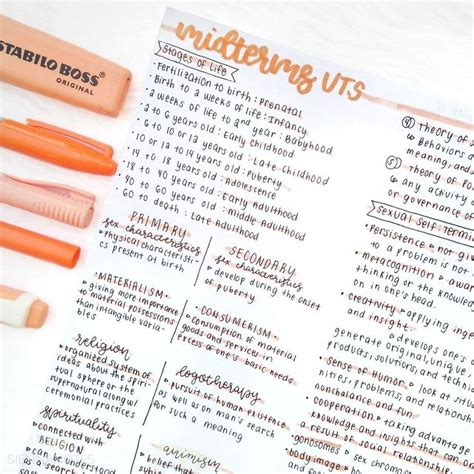 STABILO BOSS
ORIGINAL
midterms UTS
Stages of Life
• Fertilization to birth: Prenatal
• Birth to 2 weeks of life: Infancy
• 2 weeks of life to 2nd year: Babyhood
• 2 to 6 years old: Early Childhood
• 6 to 10 years old: Late Childhood
• 10 or 12 to 14 years old: Puberty
• 14 to 18 years old: Adolescence
• 18 to 40 years old: Early Adulthood
• 40 to 60 years old: Middle Adulthood
• 60 to death: Late Adulthood
PRIMARY
sex characteristics
• physical characteristi-
cs present at birth
SECONDARY
sex characteristics
• develop during the onset
of puberty
• MATERIALISM •
• giving more importance
to material possessions
than intangible varia-
bles
• CONSUMERISM •
• Consumption of material
services in
excess of one's basic needs
religion
• organized system of
ideas about the spiri-
tual sphere or the
supernatural along w/
ceremonial practices
logotherapy
• pursuit of human existence
as well as on man's search
for such a meaning
spirituality
• connected with
RELIGION
• can be understood
as a search
animism
• belief that
④ Theory of
• Behaviors a
meaning, and
⑤ Theory or
governance of
• any activity
or governa
Sexual Self: Termi
• Persistence • not giv
to a problem is not
• metacognition • awar
thinking or the know
on in one's head.
• creativity • applying
and insight.
• develops ones
generate original, unique,
products, solutions, and techni
• Sense of Humor • look at situ
nities, problems, and relation
nonbalance and fun
• cooperation • taking advantag
knowledge and insights that resul
consciously
gonosomes
• body image